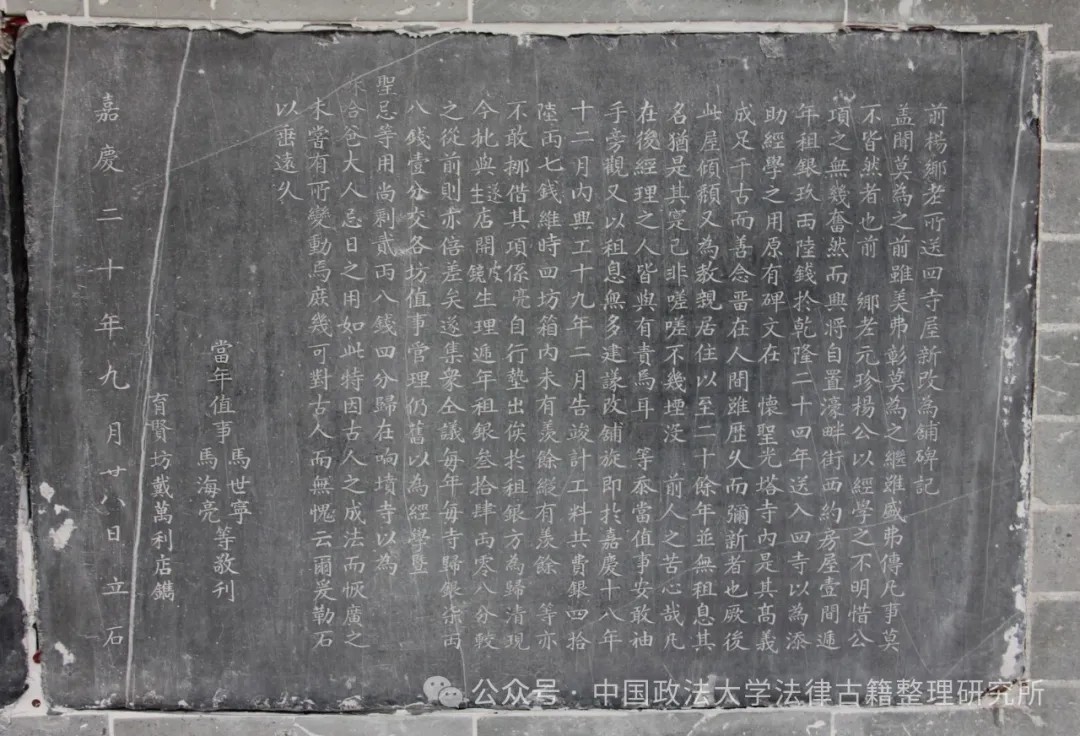 前楊鄉老所送回寺屋新改為舖碑記
盖聞莫為之前雖美弗彰莫為之繼雖盛弗傳凡事莫
不皆然者也前 鄉老元珍楊公以經學之不明惜公
項之無幾奮然而興將自置濠畔街西約房屋壹間遞
年租銀玖両陸錢於乾隆二十四年送入四寺以為添
助經學之用原有碑文在 懷聖光塔寺內是其高義
成足千古而善念晋在人間雖歷久而彌新者也厥後
此屋傾頹又為教親居住以至二十餘年並無租息其
名猶是其寔已非嗟嗟不幾堙没 前人之苦心哉凡
在後經理之人皆與有責焉耳 等忝當值事安敢袖
手旁觀又以租息無多建議改舖旋即於嘉慶十八年
十二月內興工十九年二月告竣計工料共費銀四拾
陸両七錢維時四坊箱內未有羨餘縱有羨餘 等亦
不敢挪借其項係亮自行墊出俟於租銀方為歸清現
今批與生遂店開鏡妝生理遞年租銀叁拾肆両零八分較
之從前則亦倍差矣遂集衆仝議每年每寺歸銀柒両
八錢壹分交各坊值事管理仍舊以為經學暨
聖忌等用尚剩貳両八錢四分歸在响墳寺以為
蘇哈爸大人忌日之用如此特因古人之成法而恢廣之
未嘗有所變動焉庶幾可對古人而無愧云爾爰勒石
以垂遠久
當年值事 馬世寧 馬海亮 等敬刊
育賢坊戴萬利店鐫
嘉慶二十年九月廿八日立石
公众号·中国政法大学法律古籍整理研究所